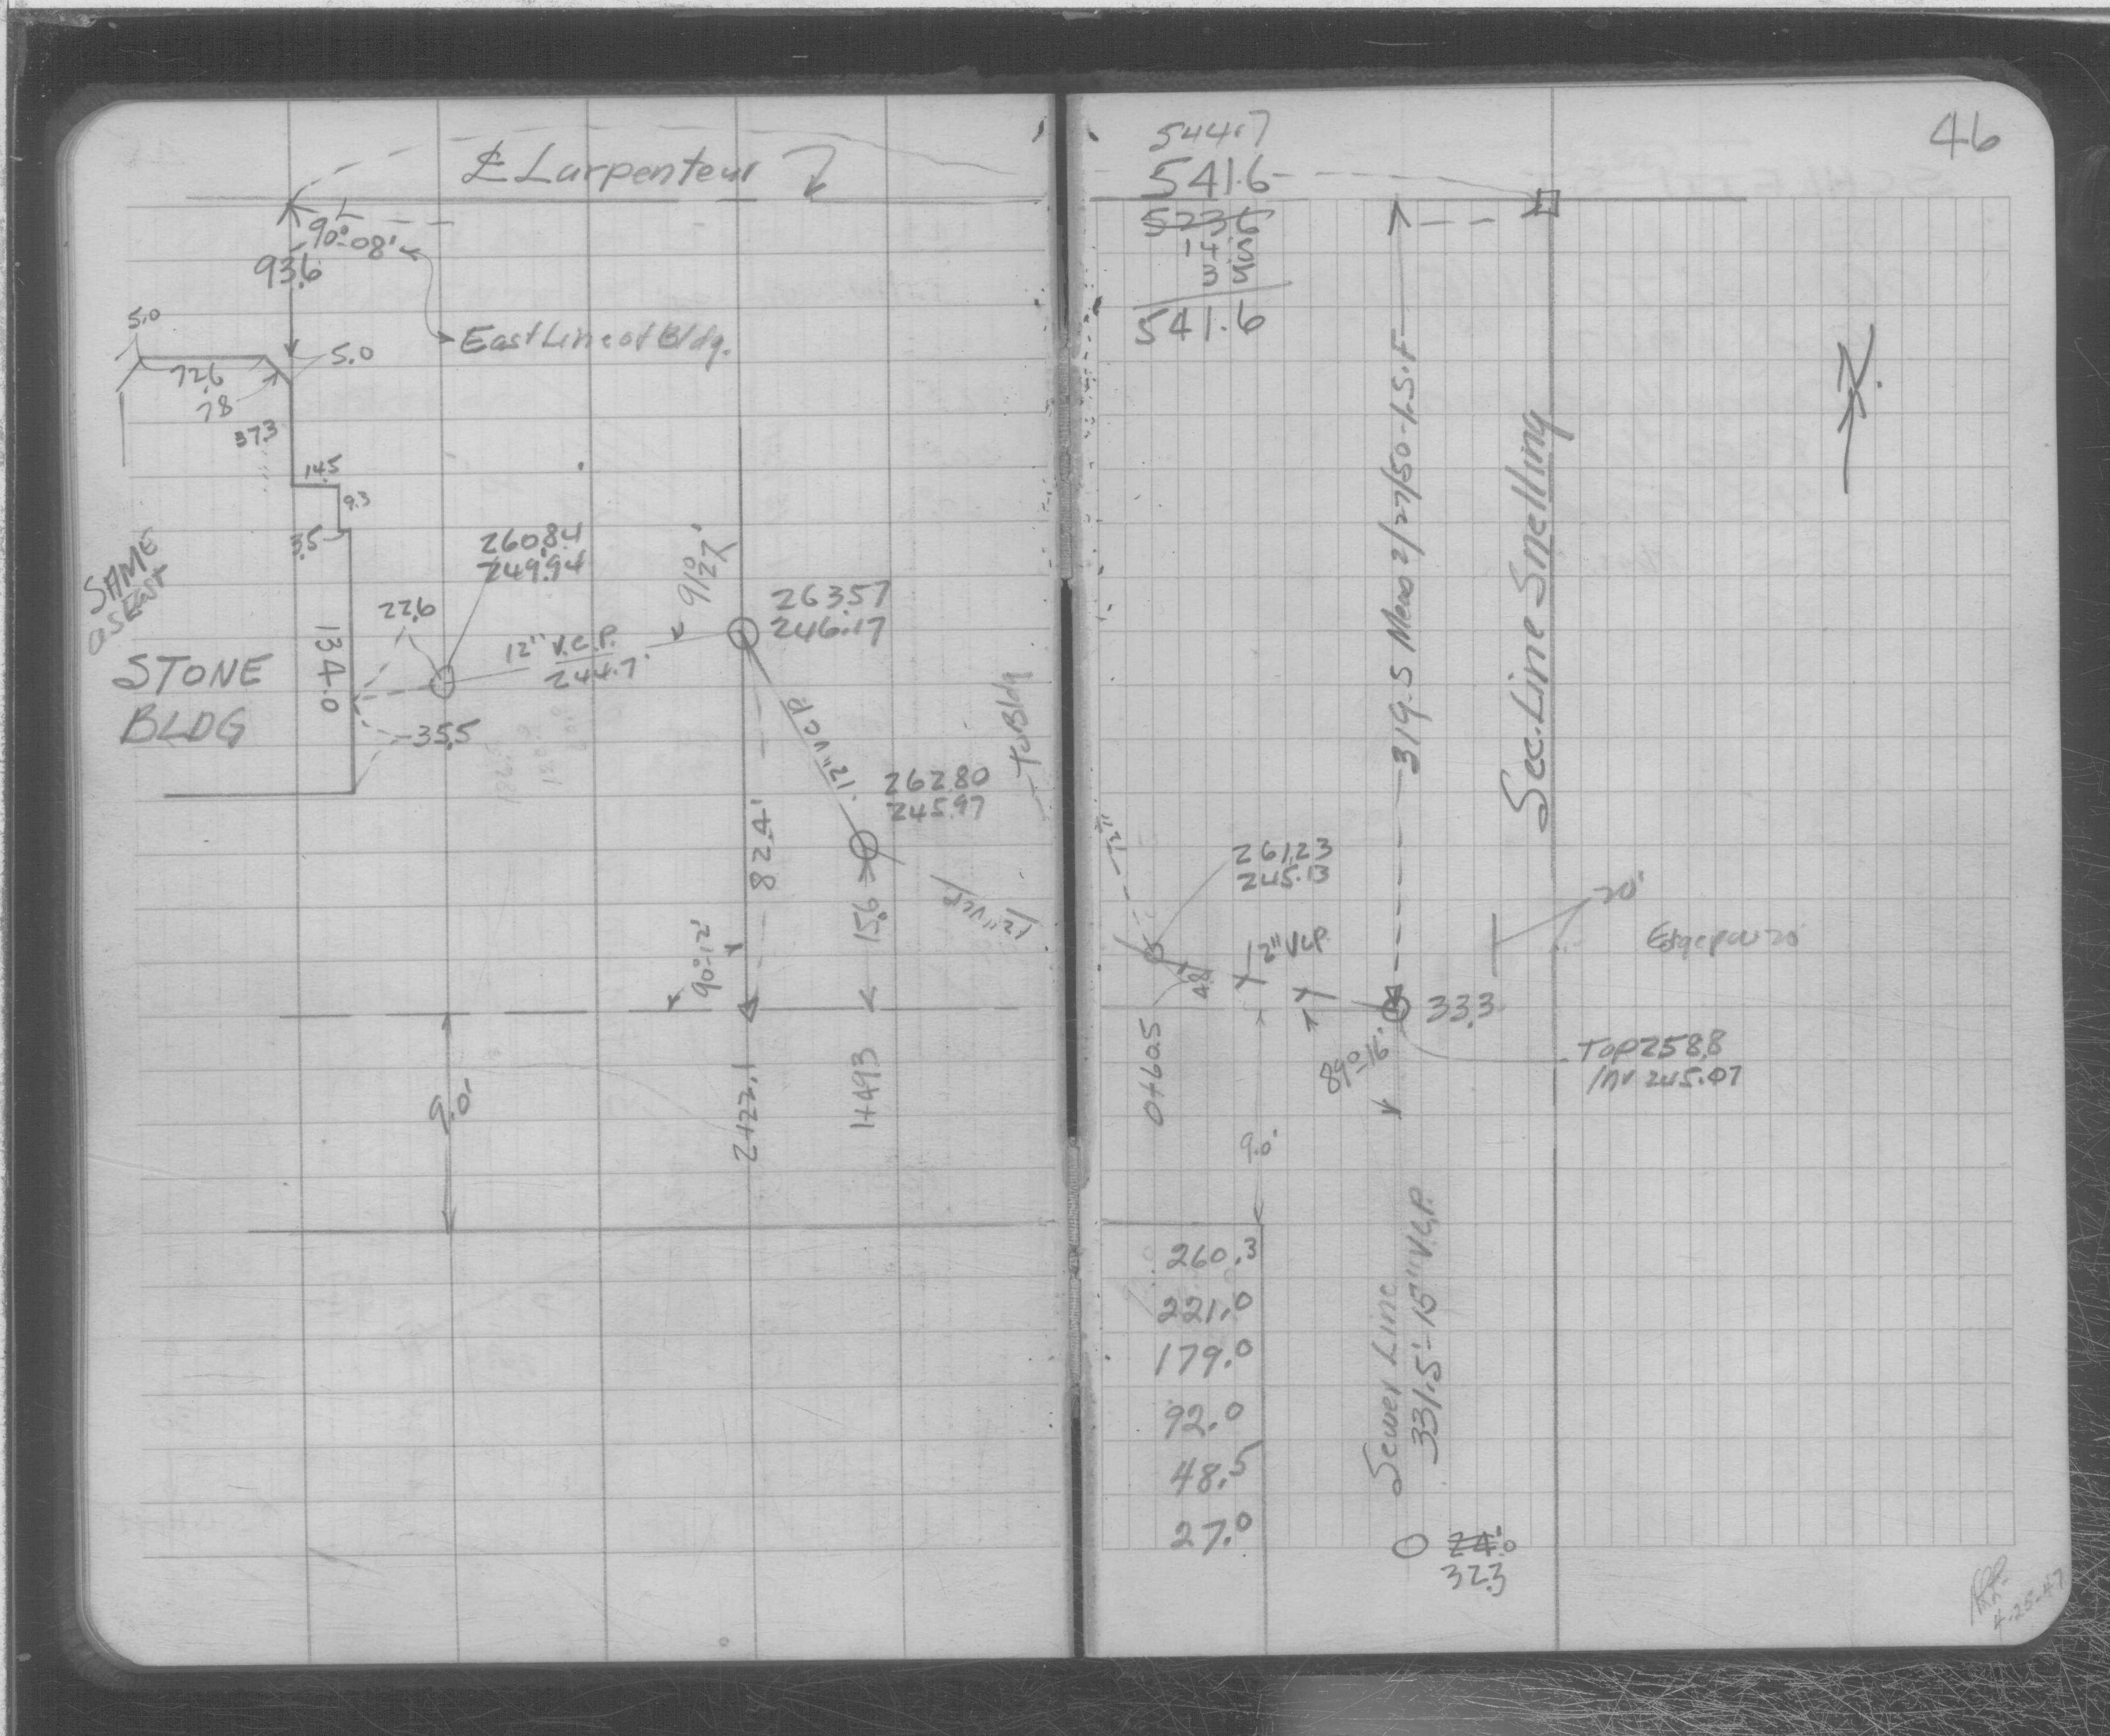 ℄ Larpenteur
90°-08'
93.6
East Line of Bldg.
5.0
5.0
72.6
7.8
37.3
14.5
9.3
3.5
SAME
as EAST
STONE
BLDG
134.0
22.6
35.5
260.84
249.94
12" V.C.P.
244.7
91°27'
263.57
246.17
12" VCP
262.80
245.97
82.4'
15.6
90°-12'
12" VCP
To Bldg
9.0'
2+22.1
1+49.3
46
544.7
541.6
523.6
14
3
541.6
319.5 Meas 2/27/50-L.S.F.
Sec. Line Snelling
12"
261.23
245.13
4.8
12" VCP
20'
33.3
Top 258.8
Inv 245.07
89°-16'
0+60.5
9.0'
260.3
221.0
179.0
92.0
48.5
27.0
Sewer Line
331.5'-15" V.C.P.
24.0
32.3
4-25-47